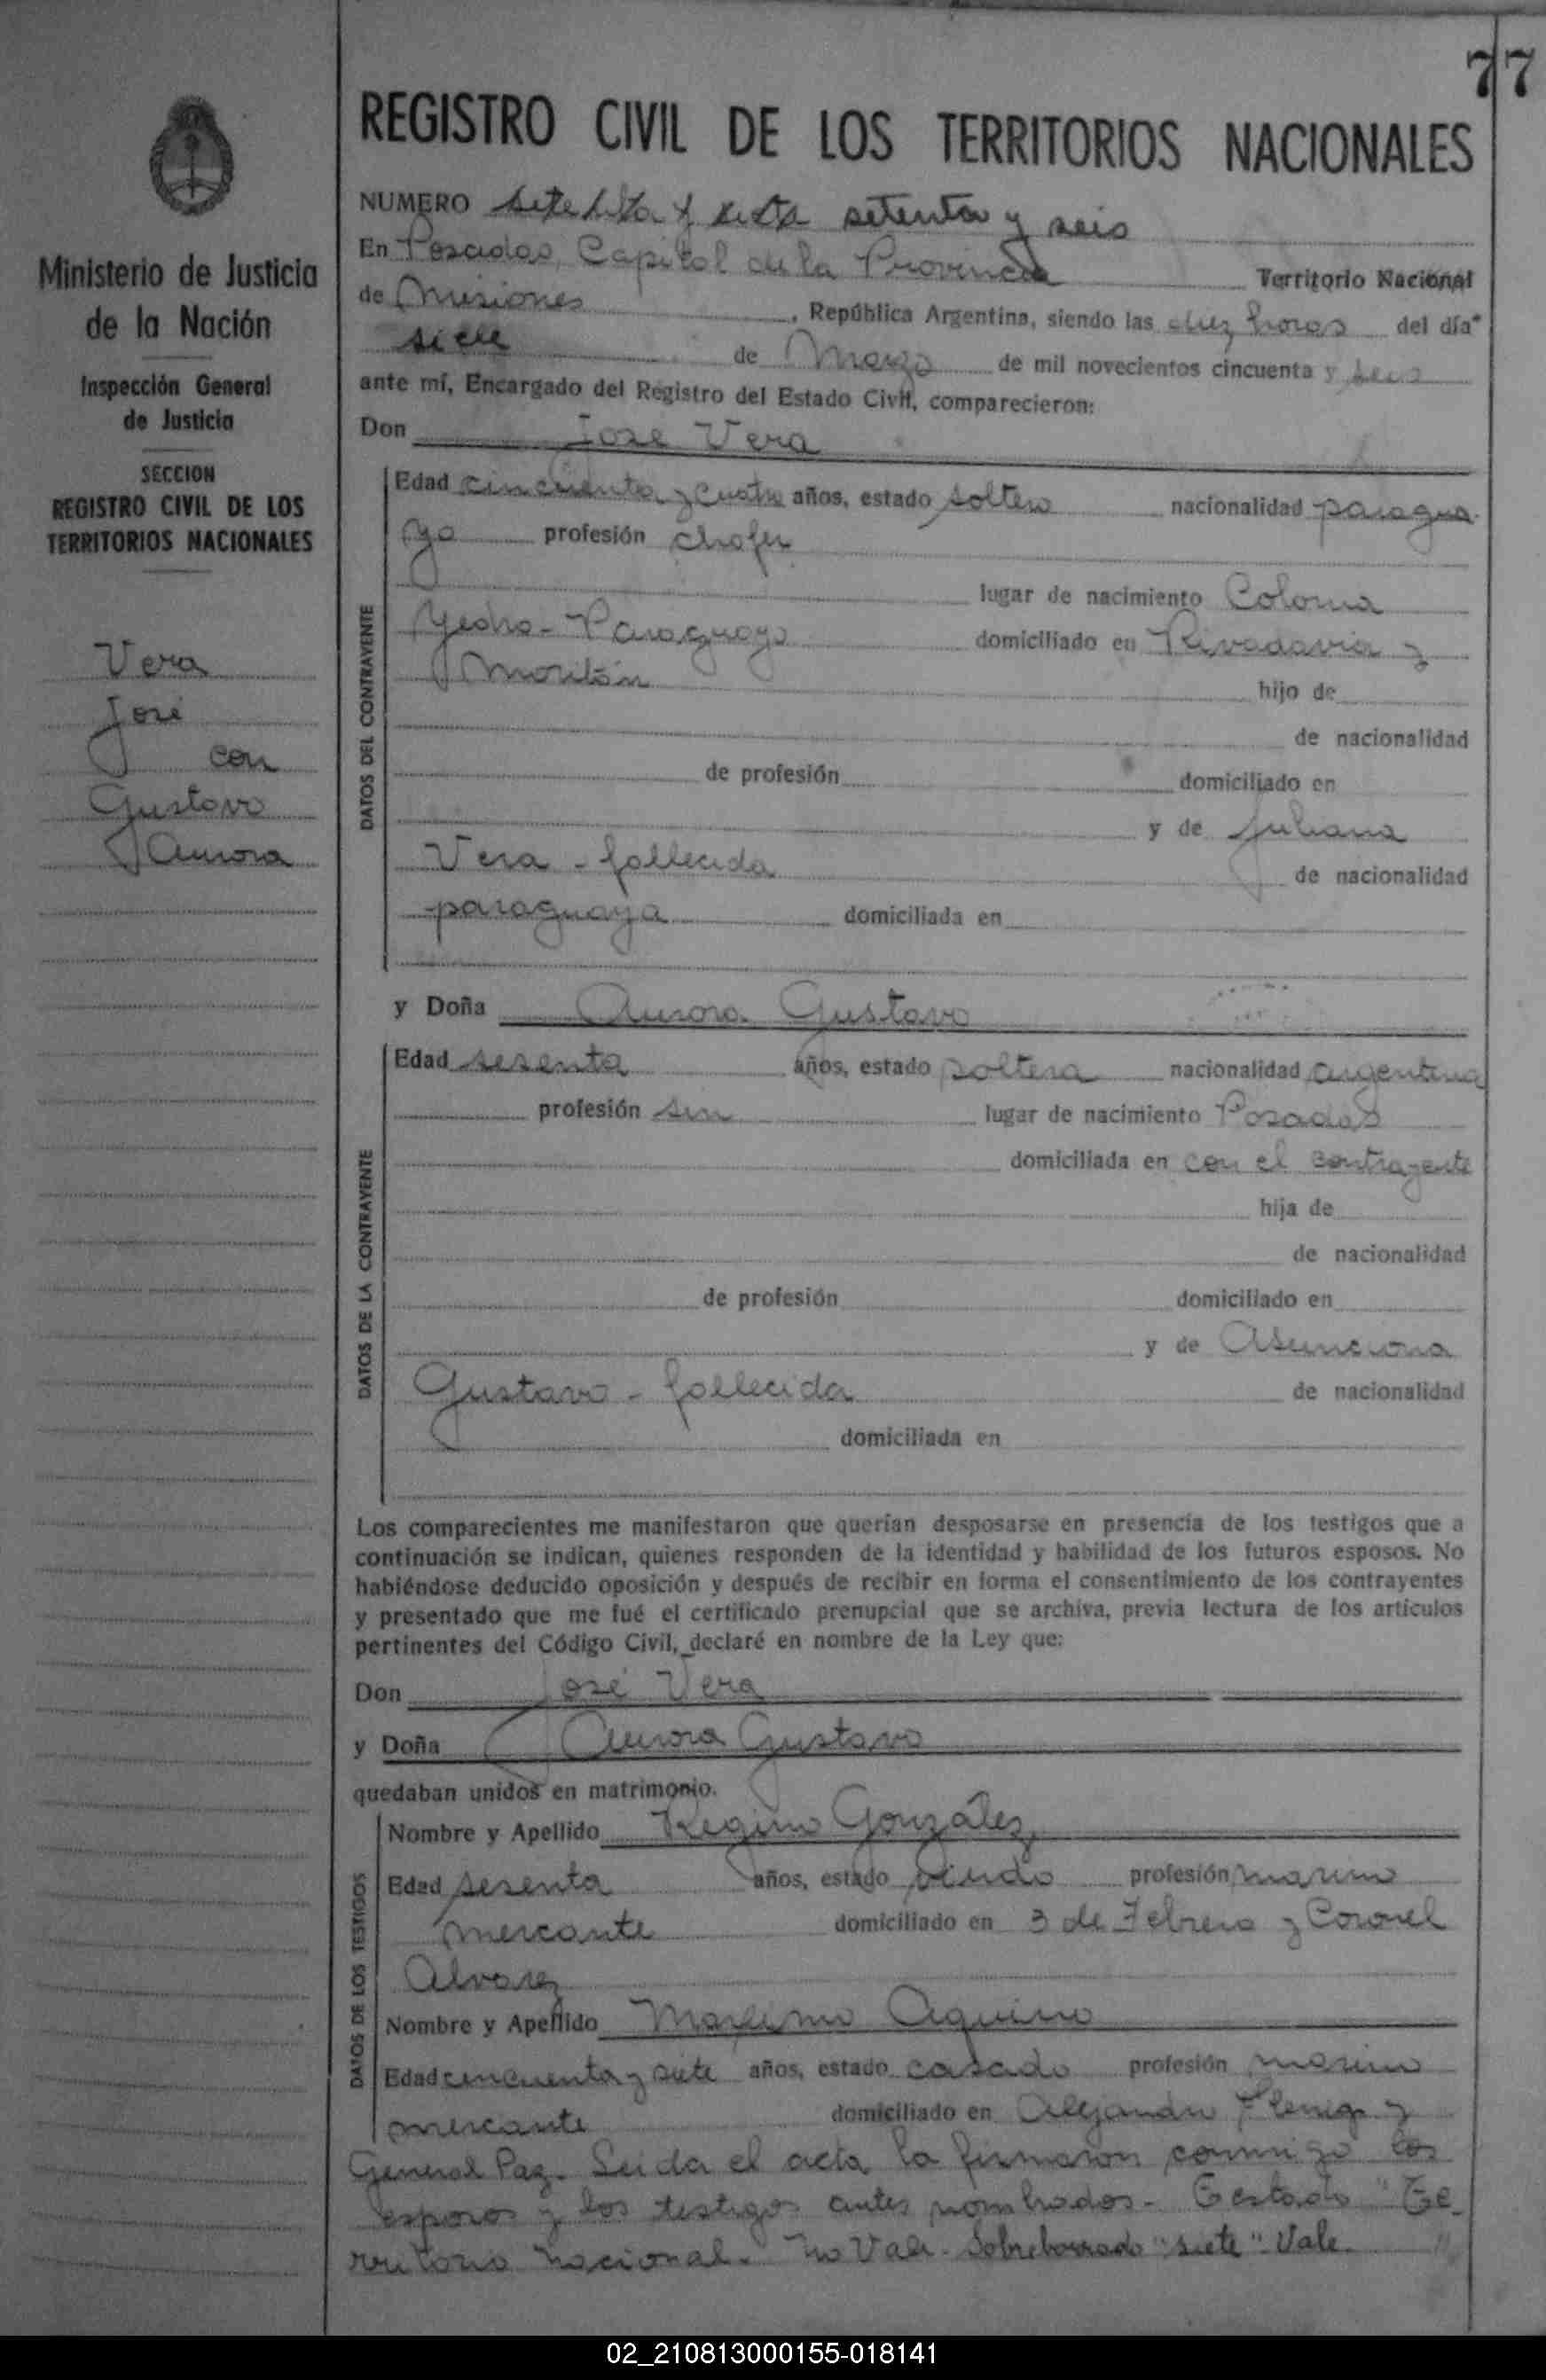 77
REGISTRO CIVIL DE LOS TERRITORIOS NACIONALES
NUMERO setenta y siete setenta y seis
En Posadas, Capital de la Provincia Territorio Nacional
de Misiones, República Argentina, siendo las diez horas del día
siete de Marzo de mil novecientos cincuenta y seis
ante mí, Encargado del Registro del Estado Civil, comparecieron:
Don José Vera
DATOS DEL CONTRAYENTE
Edad cincuenta y cuatro años, estado soltero nacionalidad paragua-
yo profesión chofer
lugar de nacimiento Colonia
Yedros - Paraguayo domiciliado en Rivadavia y
Moritán hijo de
de nacionalidad
de profesión domiciliado en
y de Juliana
Vera - fallecida de nacionalidad
paraguaya domiciliada en
y Doña Aurora Gustavo
DATOS DE LA CONTRAYENTE
Edad sesenta años, estado soltera nacionalidad argentina
profesión sin lugar de nacimiento Posadas
domiciliada en con el contrayente
hija de
de nacionalidad
de profesión domiciliado en
y de Asunciona
Gustavo - fallecida de nacionalidad
domiciliada en
Los comparecientes me manifestaron que querían desposarse en presencia de los testigos que a
continuación se indican, quienes responden de la identidad y habilidad de los futuros esposos. No
habiéndose deducido oposición y después de recibir en forma el consentimiento de los contrayentes
y presentado que me fué el certificado prenupcial que se archiva, previa lectura de los artículos
pertinentes del Código Civil, declaré en nombre de la Ley que:
Don José Vera
y Doña Aurora Gustavo
quedaban unidos en matrimonio.
DATOS DE LOS TESTIGOS
Nombre y Apellido Regino González
Edad sesenta años, estado viudo profesión marino
mercante domiciliado en 3 de Febrero y Coronel
Alvarez
Nombre y Apellido Maximo Aquino
Edad cincuenta y siete años, estado casado profesión marino
mercante domiciliado en Alejandro Fleming y
General Paz. Leida el acta la firmaron conmigo los
esposos y los testigos antes nombrados. - Testado "Te-
rritorio Nacional. No Vale. Sobreborrado "siete" Vale.
Ministerio de Justicia
de la Nación
Inspección General
de Justicia
SECCION
REGISTRO CIVIL DE LOS
TERRITORIOS NACIONALES
Vera
José
con
Gustavo
Aurora
02_210813000155-018141